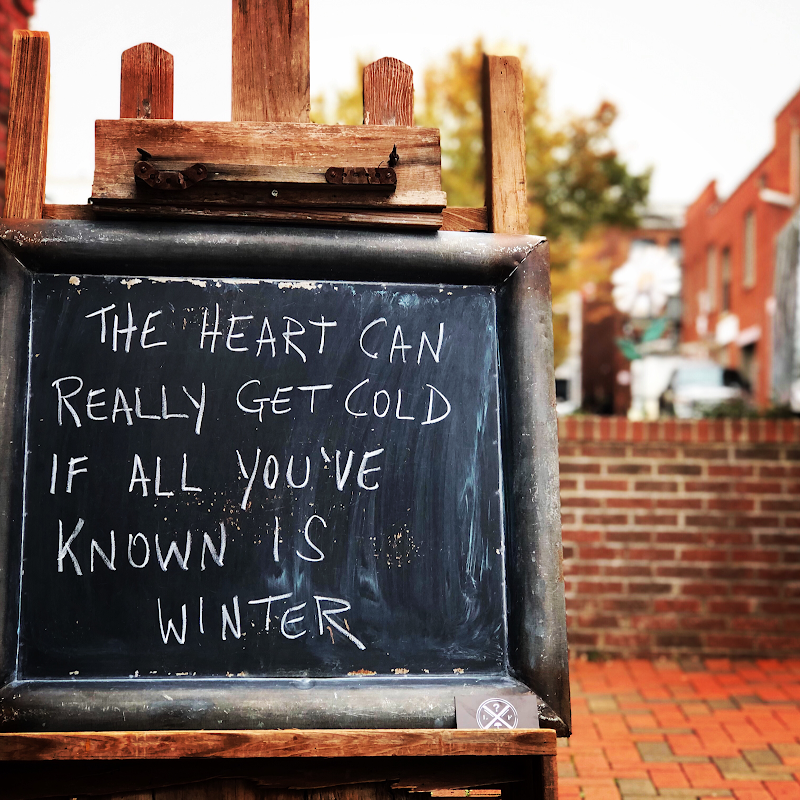 THE HEART CAN
REALLY GET COLD
IF ALL YOU'VE
KNOWN IS
WINTER